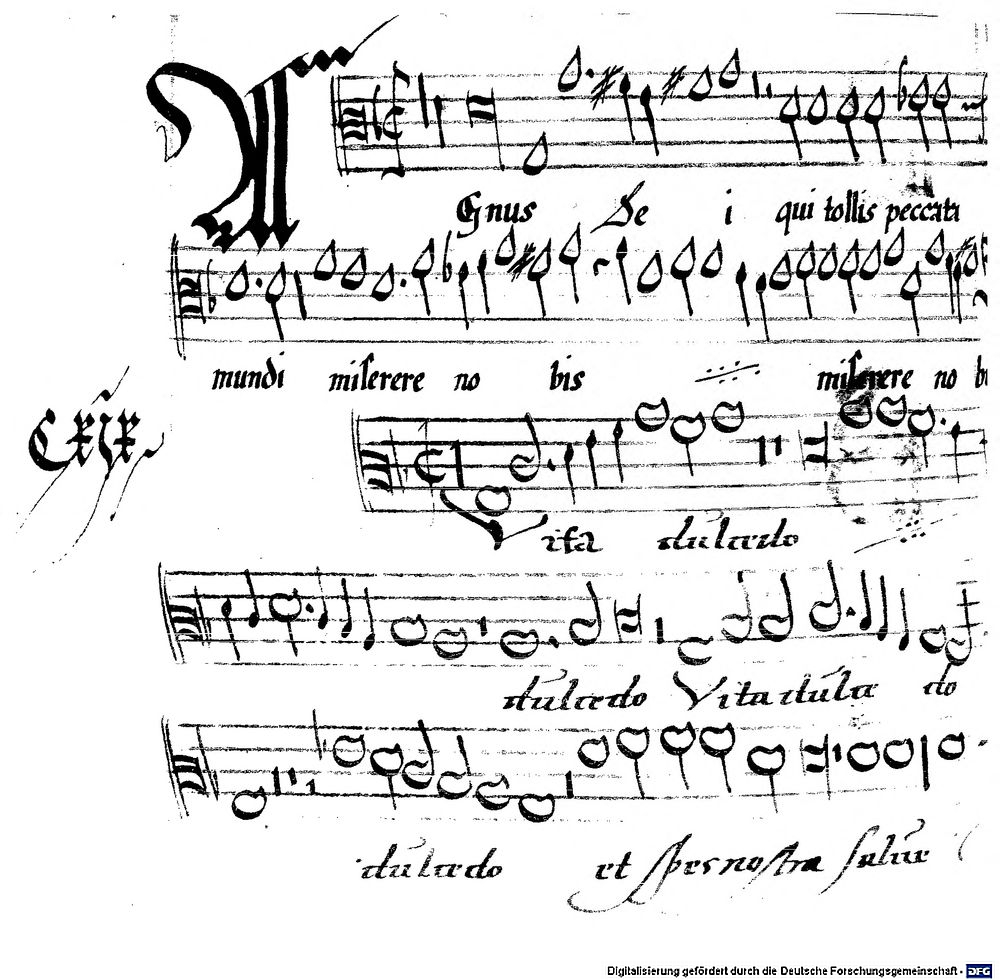 AGnus De i qui tollis peccata
mundi miserere no bis miserere no bi
Cxix
Vita dulcedo
dulcedo Vita dulce do
dulcedo et spes nostra salue
Digitalisierung gefördert durch die Deutsche Forschungsgemeinschaft - DFG